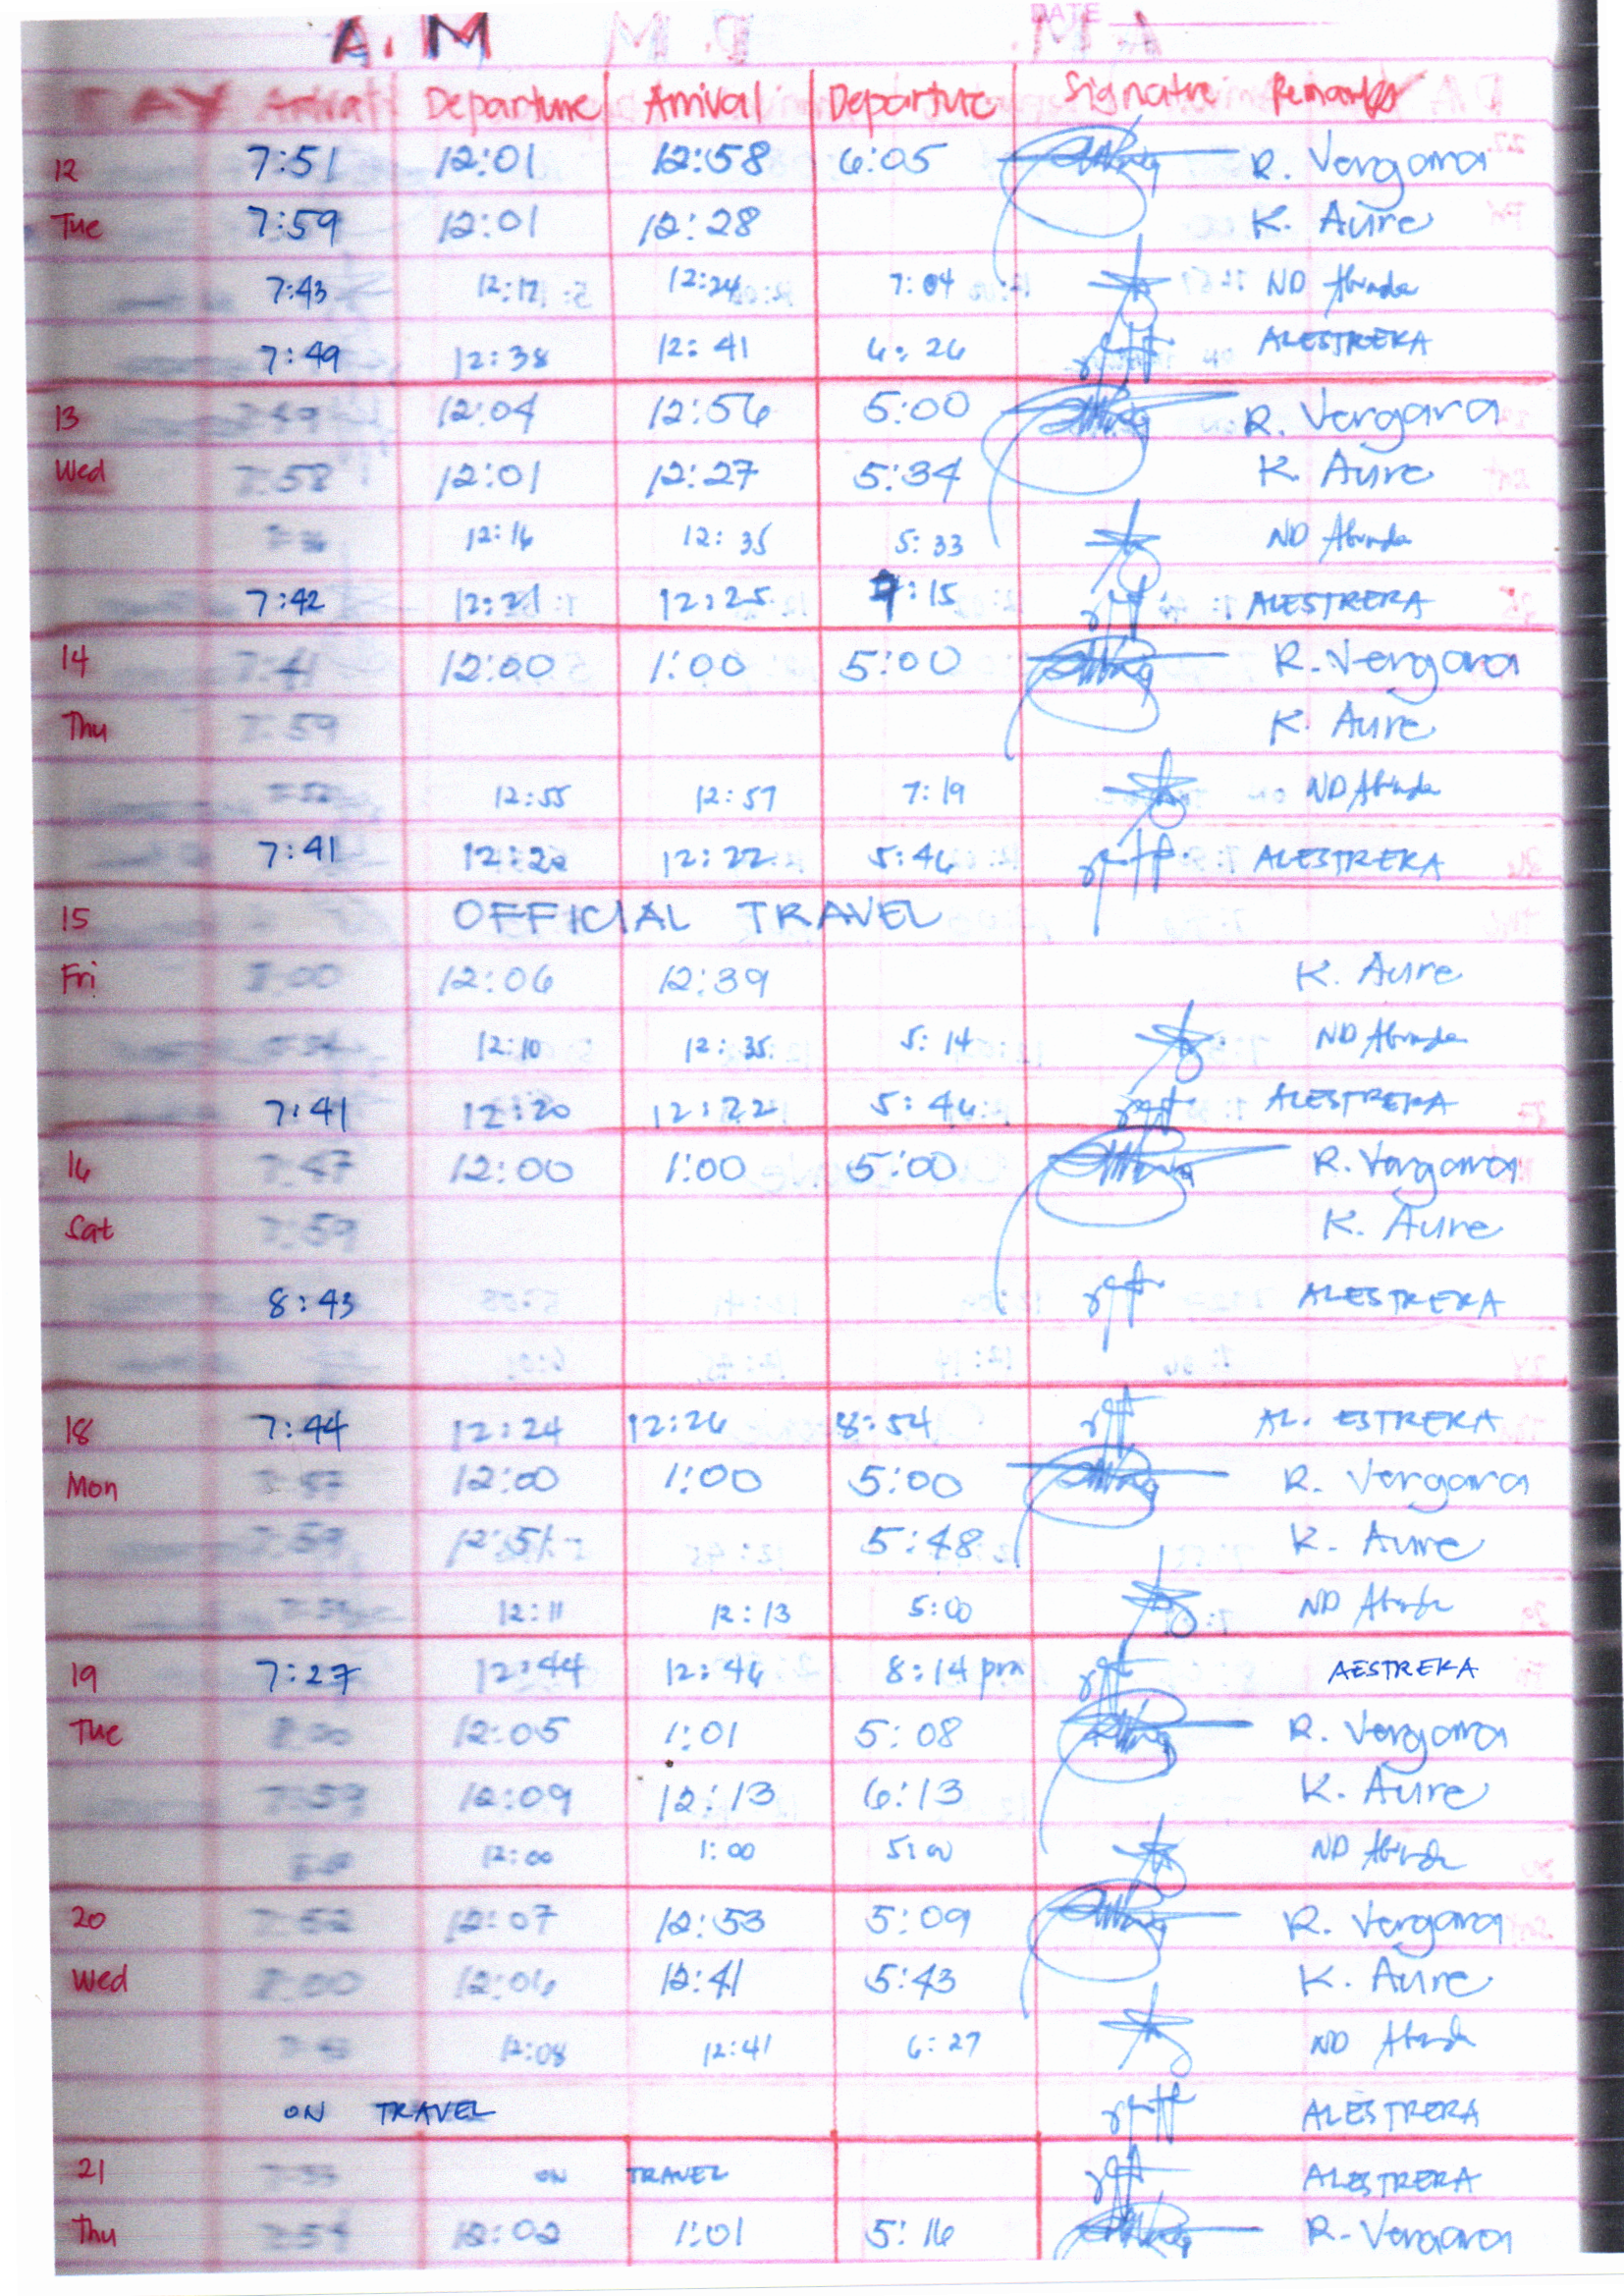 DATE
A.M
DAY Arrival Departure Arrival Departure Signature Remarks
12 7:51 12:01 12:58 6:05 R. Vergara
Tue 7:59 12:01 12:28 K. Aure
7:43 12:17 12:24 7:04 ND Abrada
7:49 12:38 12:41 6:26 ALESTRERA
13 7:59 12:04 12:56 5:00 R. Vergara
Wed 7:58 12:01 12:27 5:34 K. Aure
12:16 12:35 5:33 ND Abrada
7:42 12:21 12:25 7:15 ALESTRERA
14 7:41 12:00 1:00 5:00 R. Vergara
Thu 7:59 K. Aure
12:55 12:57 7:19 ND Abrada
7:41 12:20 12:22 5:46 ALESTRERA
15 OFFICIAL TRAVEL
Fri 8:00 12:06 12:39 K. Aure
12:10 12:35 5:14 ND Abrada
7:41 12:20 12:22 5:46 ALESTRERA
16 7:47 12:00 1:00 5:00 R. Vergara
Sat 7:59 K. Aure
8:43 ALESTRERA
18 7:44 12:24 12:26 8:54 AL. ESTRERA
Mon 7:57 12:00 1:00 5:00 R. Vergara
7:59 12:51 5:48 K. Aure
12:11 12:13 5:00 ND Abrada
19 7:27 12:44 12:46 8:14 pm AESTRERA
Tue 8:00 12:05 1:01 5:08 R. Vergara
7:59 12:09 12:13 6:13 K. Aure
12:00 1:00 5:00 ND Abrada
20 7:52 12:07 12:53 5:09 R. Vergara
Wed 8:00 12:06 12:41 5:43 K. Aure
12:08 12:41 6:27 ND Abrada
ON TRAVEL ALESTRERA
21 ON TRAVEL ALESTRERA
Thu 7:54 12:02 1:01 5:16 R. Vergara